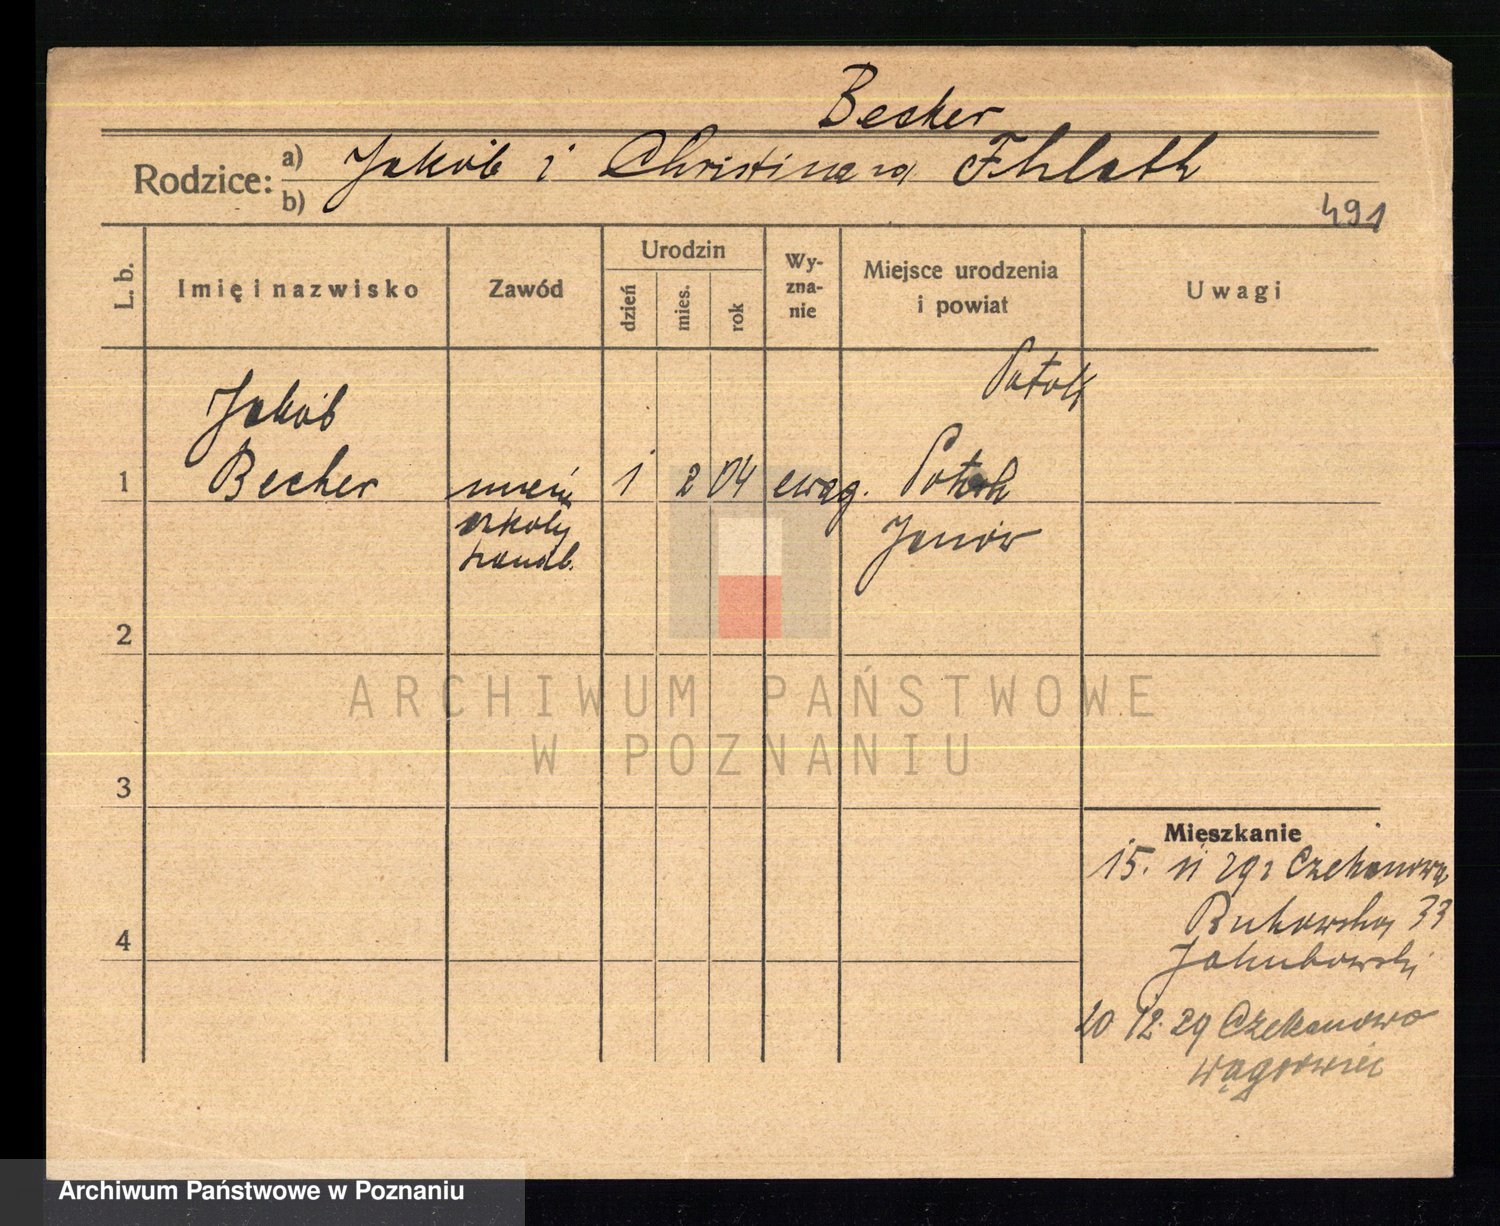 Becker
Rodzice: a) Jakób i Christina za Fhlath
b)
491
L. b. Imię i nazwisko Zawód Urodzin dzień mies. rok Wy-zna-nie Miejsce urodzenia i powiat Uwagi
Potok
Jakób
1 Becher uczeń 1 2 04 ewag. Potok
szkoły Janów
handl.
2
ARCHIWUM PAŃSTWOWE
W POZNANIU
3
Mieszkanie
15. 11 29 z Czekanowa
Bukowska 33
4
Jakubowski
20 12. 29 Czekanowo
wągrowiec
Archiwum Państwowe w Poznaniu